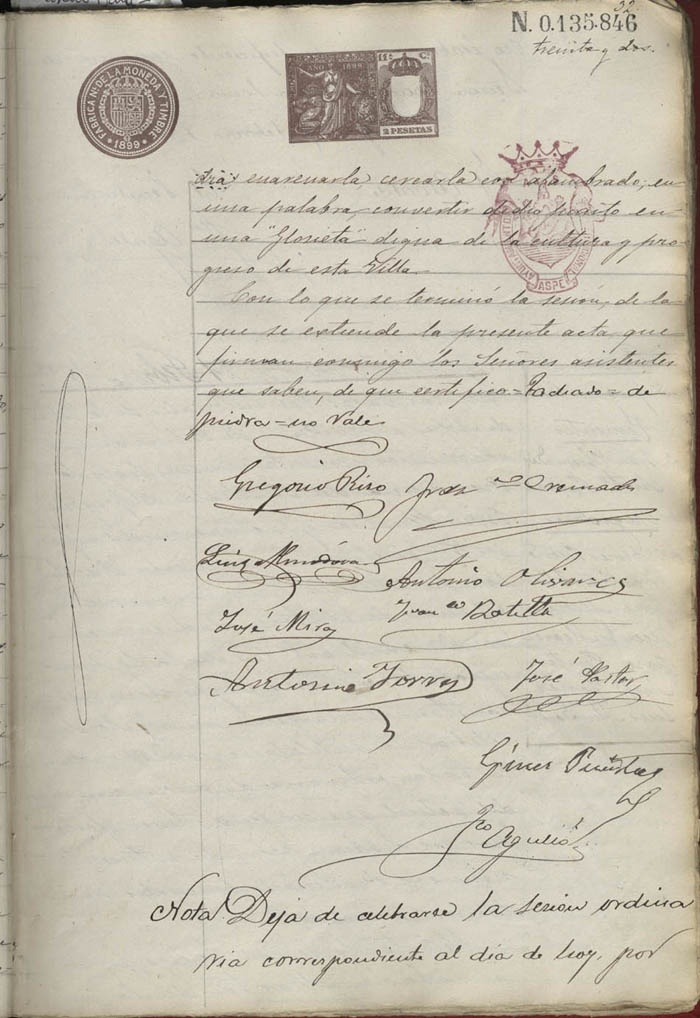 32
N. 0.135.846
treinta y dos.
FABRICA NL DE LA MONEDA Y TIMBRE
1899
AÑO 1899
11ª C.
2 PESETAS
ASPE
enarenarla cercarla con alambrado, en
una palabra, convertir dicho punto en
una "Glorieta" digna de la cultura y pro
greso de esta Villa
Con lo que se terminó la sesión, de la
que se extiende la presente acta que
firman conmigo los Señores asistentes
que saben, de que certifico = Tachado = de
piedra = no vale
Gregorio Rizo
Cremades
Luis Antonio Olivares
José Mira Botella
Antonio Torres
José Pastor
Giner
Fco Agulló
Nota Deja de celebrarse la sesion ordina
ria correspondiente al dia de hoy, por